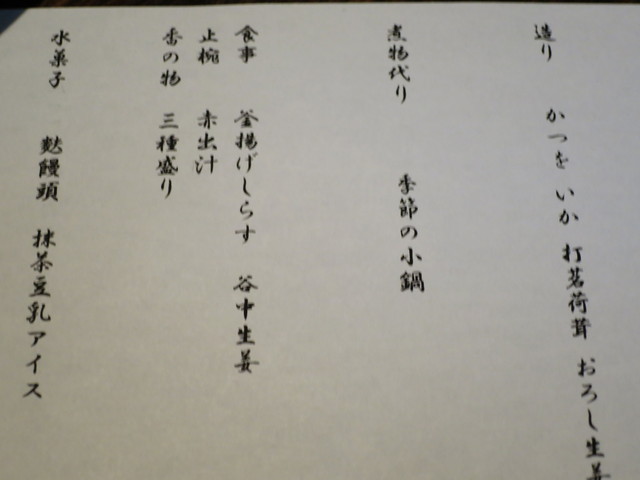 造り かつを いか 打茗荷茸 おろし生姜
煮物代り 季節の小鍋
食事 釜揚げしらす 谷中生姜
止椀 赤出汁
香の物 三種盛り
水菓子 麩饅頭 抹茶豆乳アイス